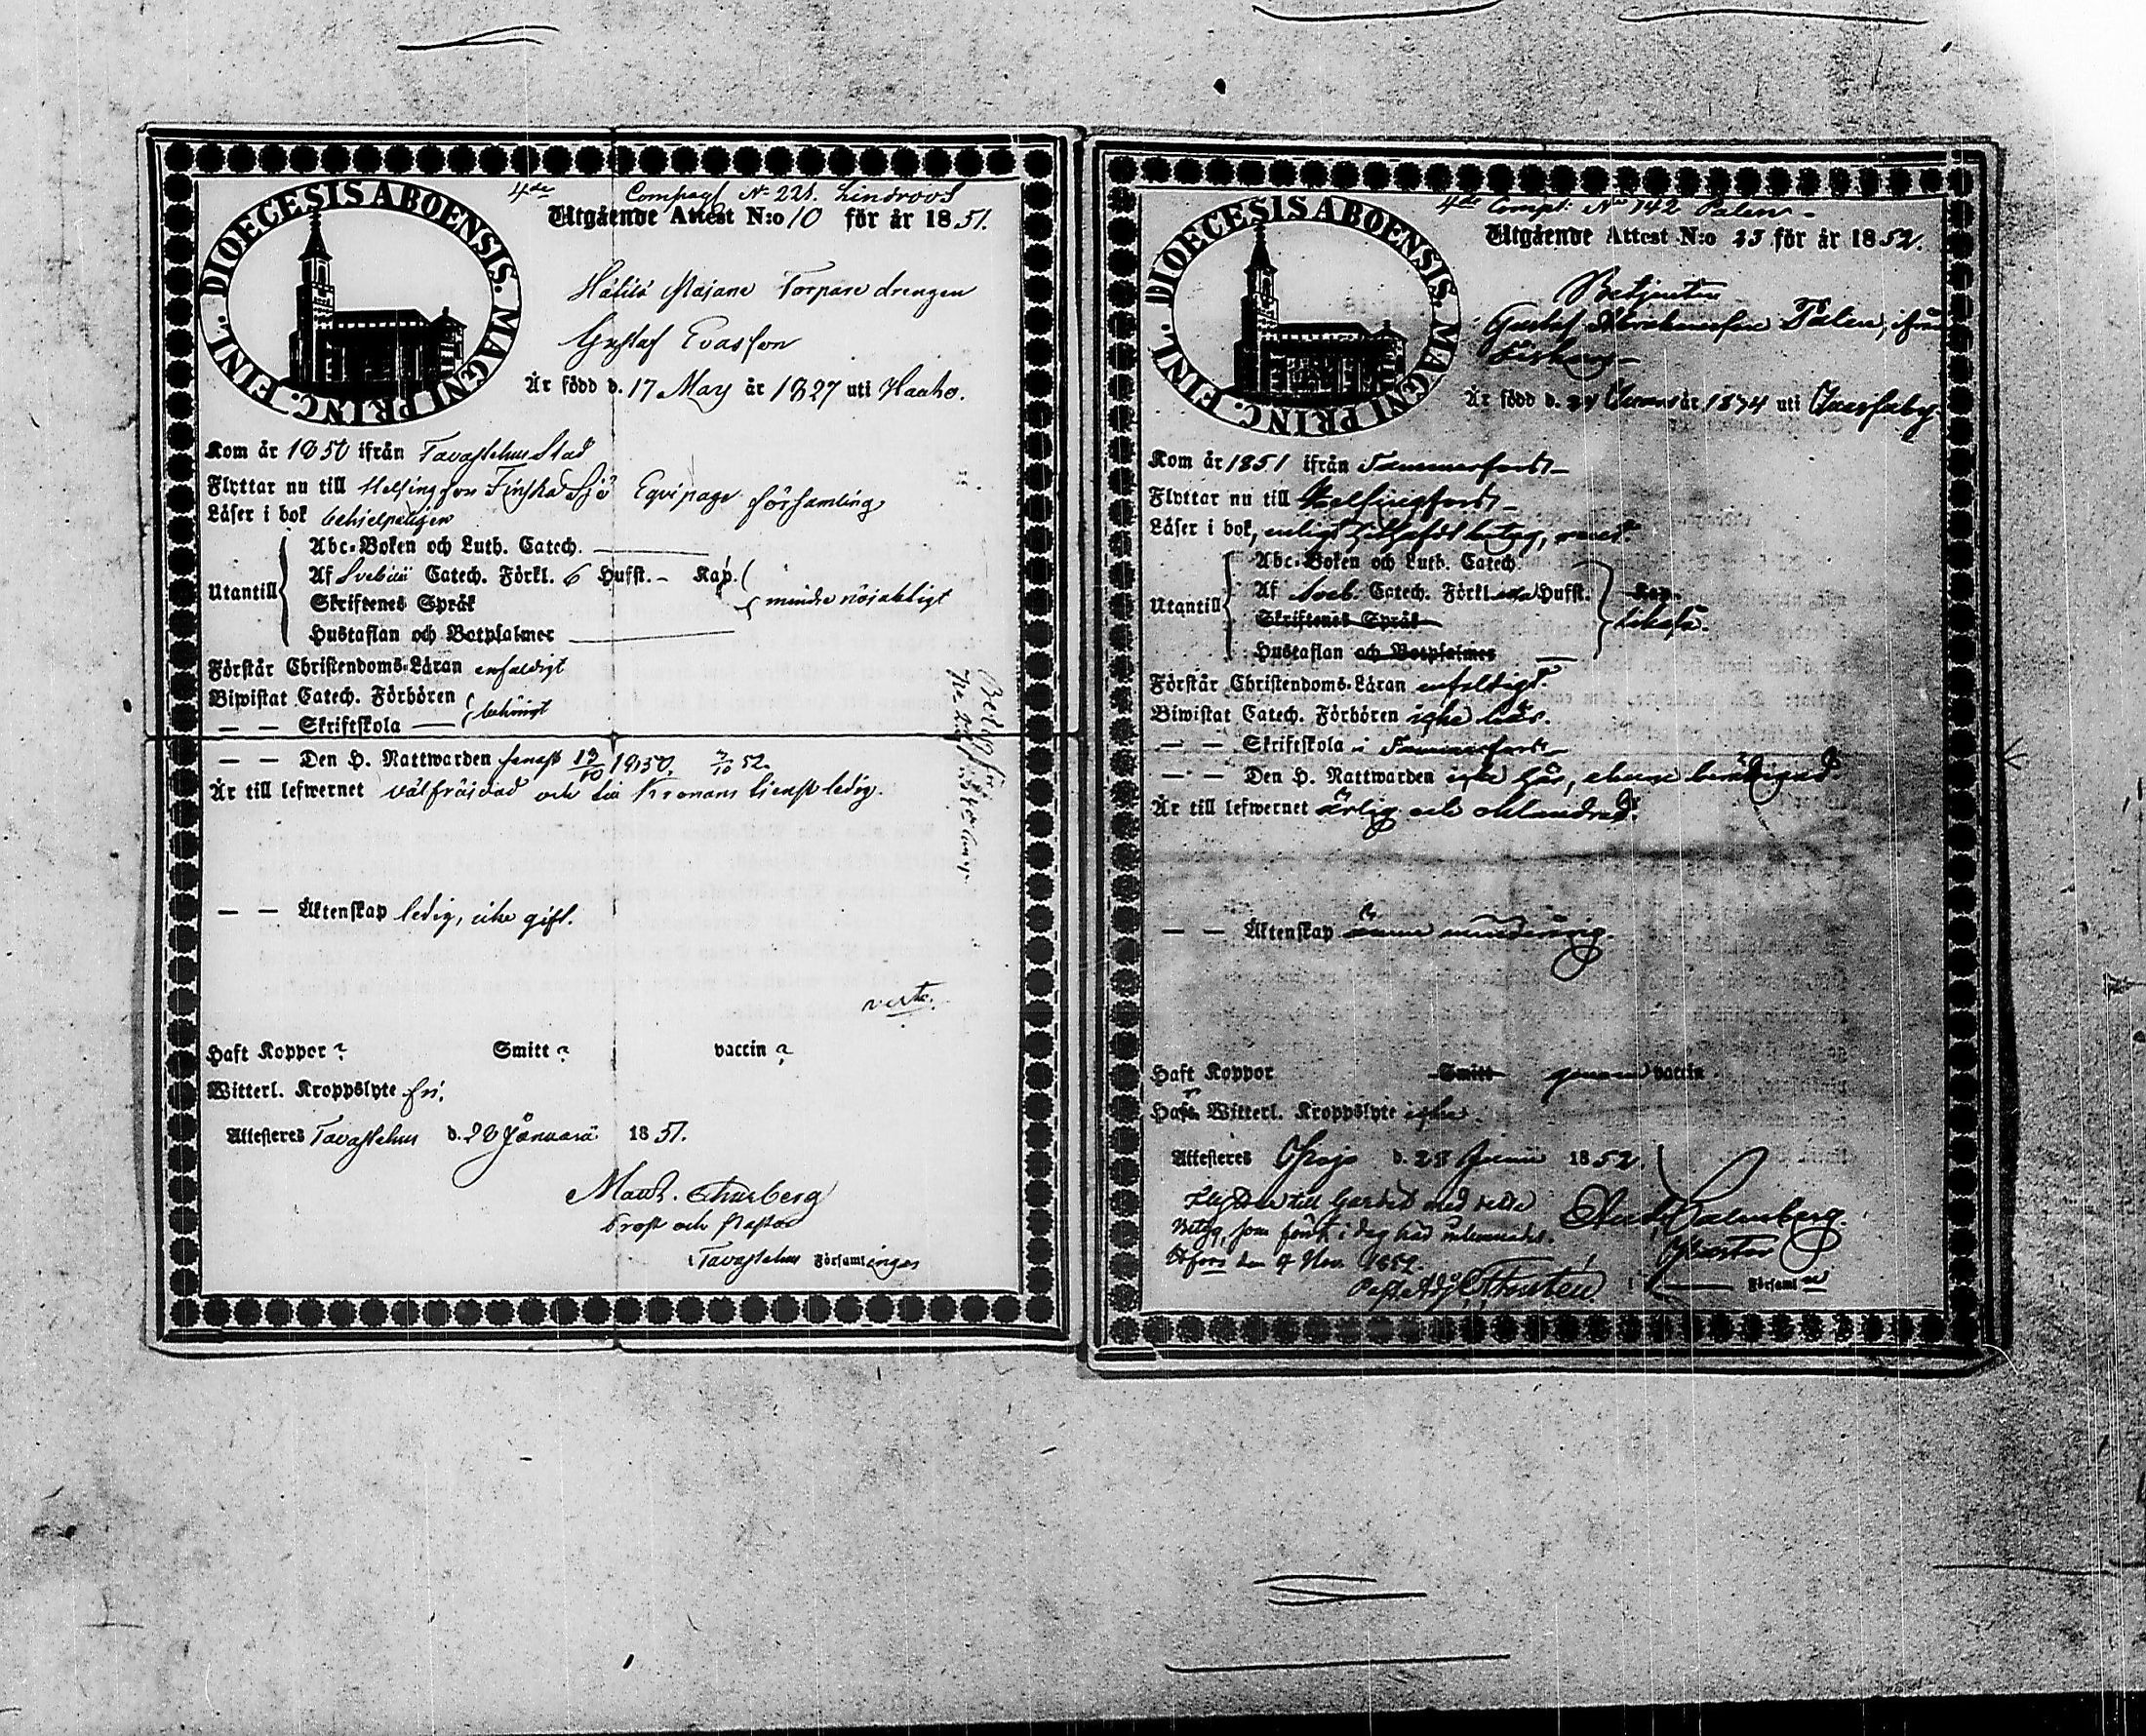 4de Compagt No 221. Lindroos
Utgående Attest N:o 10 för år 1851.
DIOECESIS ABOENSIS. MAGNI PRINC. FINL.
Torpare drengen
Gustaf Evasson
Är född d. 17 May år 1827 uti Hauho.
Kom år 1850 ifrån Tavastehus Stad
Flyttar nu till Helsingfors Finska Sjö Equipage församling
Läser i bok behjelpeligen
Utantill
Abc-Boken och Luth. Catech.
Af Svebilii Catech. Förkl. 6 Hufst. - Kap.
Skriftenes Språk
mindre nöjaktigt
Hustaflan och Botpsalmer
Förstår Christendoms-Läran enfaldigt
Biwistat Catech. Förhören
— — Skriftskola
behörigt
— — Den H. Nattwarden senast 13/10 1850. 3/10 52.
Är till lefwernet välfräjdad och till Kronans tienst ledig.
— — Äktenskap ledig, icke gift.
verte.
Haft Koppor? Smitt? vaccin?
Witterl. Kroppslyte fri.
Attesteres Tavastehus d. 20 Januari 1851.
Thurberg
Prost och Pastor
Tavastehus Församlinges
4de Compt. No 142 Palen
Utgående Attest N:o 23 för år 1852.
DIOECESIS ABOENSIS. MAGNI PRINC. FINL.
Betjenten
Gustaf Abrahamsson Palen, ifrån
Fiskars
Är född d. år 1834 uti
Kom år 1851 ifrån Tammerfors
Flyttar nu till Helsingfors
Läser i bok, enligt betyg, rent.
Utantill
Abc-Boken och Luth. Catech.
Af Sveb. Catech. Förkl. Hufst. Kap.
Skriftenes Språk
likaså.
Hustaflan och Botpsalmer
Förstår Christendoms-Läran enfaldigt.
Biwistat Catech. Förhören icke här.
— — Skriftskola i Tammerfors
— — Den H. Nattwarden icke här, ehuru berättigad.
Är till lefwernet ärlig och oklandrad.
— — Äktenskap ännu minderårig.
Haft Koppor Smitt genom vaccin
Haft Witterl. Kroppslyte icke.
Attesteres Pojo d. 28 Junii 1852.
till Gardet med detta
Betyg, som först i dag här inlemnades.
H:fors den 9 Nov. 1852.
Pastor
Församl